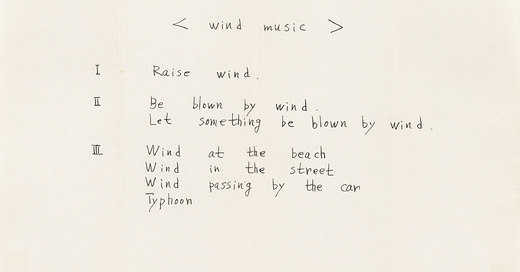 < wind music >
I Raise wind.
II Be blown by wind.
Let something be blown by wind.
III Wind at the beach
Wind in the street
Wind passing by the car
Typhoon